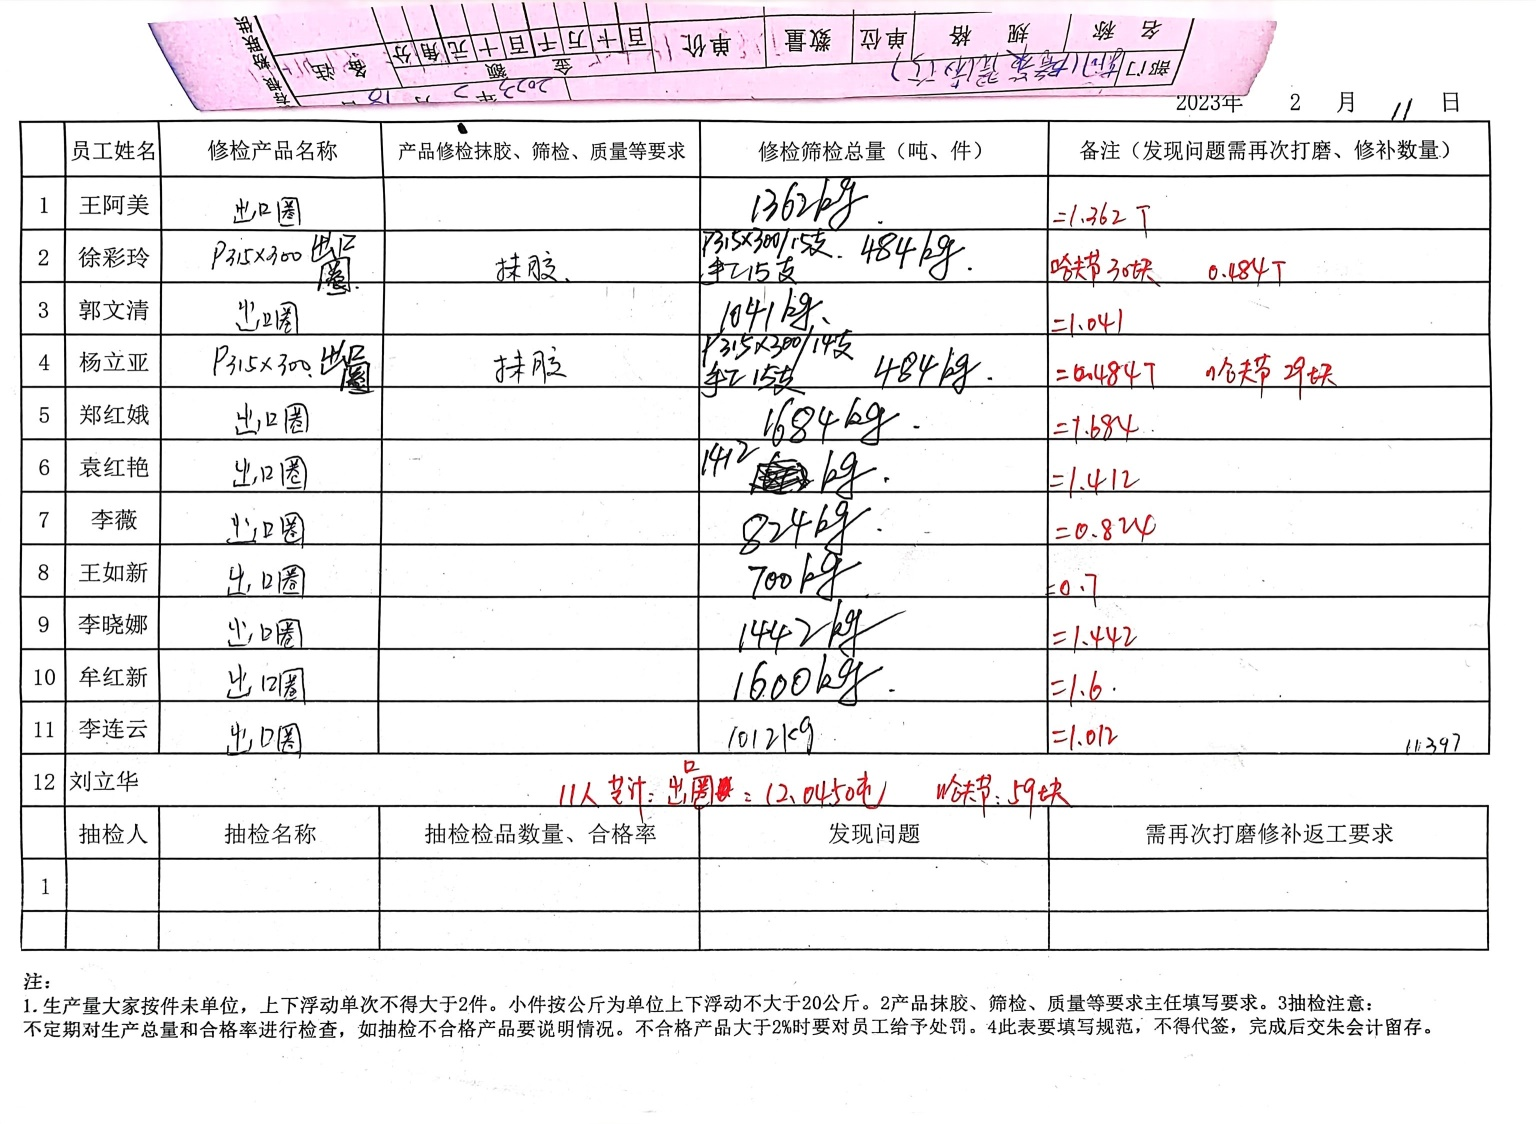 存根 粉联供
部门
2023年2月18日
名称 规格 单位 数量 单价 金额 百十万千百十元角分 备注
2023年 2 月 11 日
员工姓名 修检产品名称 产品修检抹胶、筛检、质量等要求 修检筛检总量（吨、件） 备注（发现问题需再次打磨、修补数量）
1 王阿美 出口圈 1362kg. =1.362 T
2 徐彩玲 P315×300 出口圈. 抹胶. P315×300/15支. 手工15支 484kg. 哈夫节30块 0.484T
3 郭文清 出口圈 1041kg. =1.041
4 杨立亚 P315×300. 出口圈 抹胶 P315×300/14支 手工15支 484kg. =0.484T 哈夫节 29块
5 郑红娥 出口圈 1684kg. =1.684
6 袁红艳 出口圈 1412 kg. =1.412
7 李薇 出口圈 824kg. =0.824
8 王如新 出口圈 700kg. =0.7
9 李晓娜 出口圈 1442kg =1.442
10 牟红新 出口圈 1600kg. =1.6.
11 李连云 出口圈 1012kg =1.012 11397
12 刘立华 11人共计：出口圈：12.0450吨 哈夫节：59块
抽检人 抽检名称 抽检检品数量、合格率 发现问题 需再次打磨修补返工要求
1
注：
1.生产量大家按件未单位，上下浮动单次不得大于2件。小件按公斤为单位上下浮动不大于20公斤。2产品抹胶、筛检、质量等要求主任填写要求。3抽检注意：
不定期对生产总量和合格率进行检查，如抽检不合格产品要说明情况。不合格产品大于2%时要对员工给予处罚。4此表要填写规范，不得代签，完成后交朱会计留存。